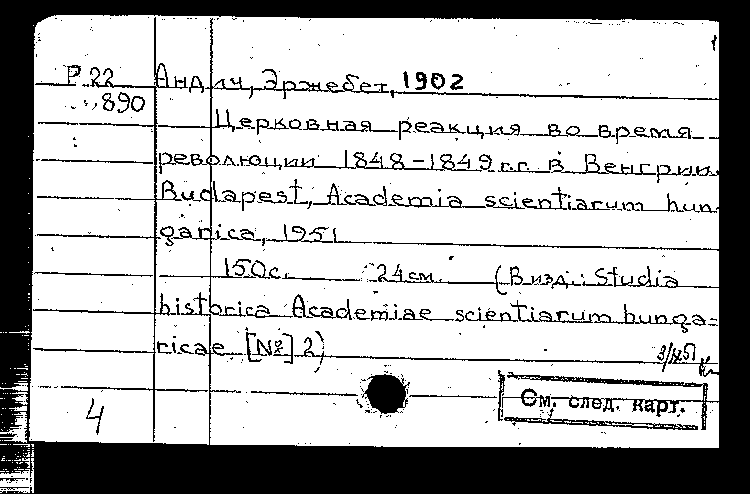 1
Р.22 Андич, Эржебет, 1902
890
Церковная реакция во время
революции 1848-1849 г.г. в Венгрии
Budapest, Academia scientiarum hun
garica, 1951
150 с. 24 см. (В изд.: Studia
historica Academiae scientiarum hunga-
ricae [№] 2)
4
См. след. карт.